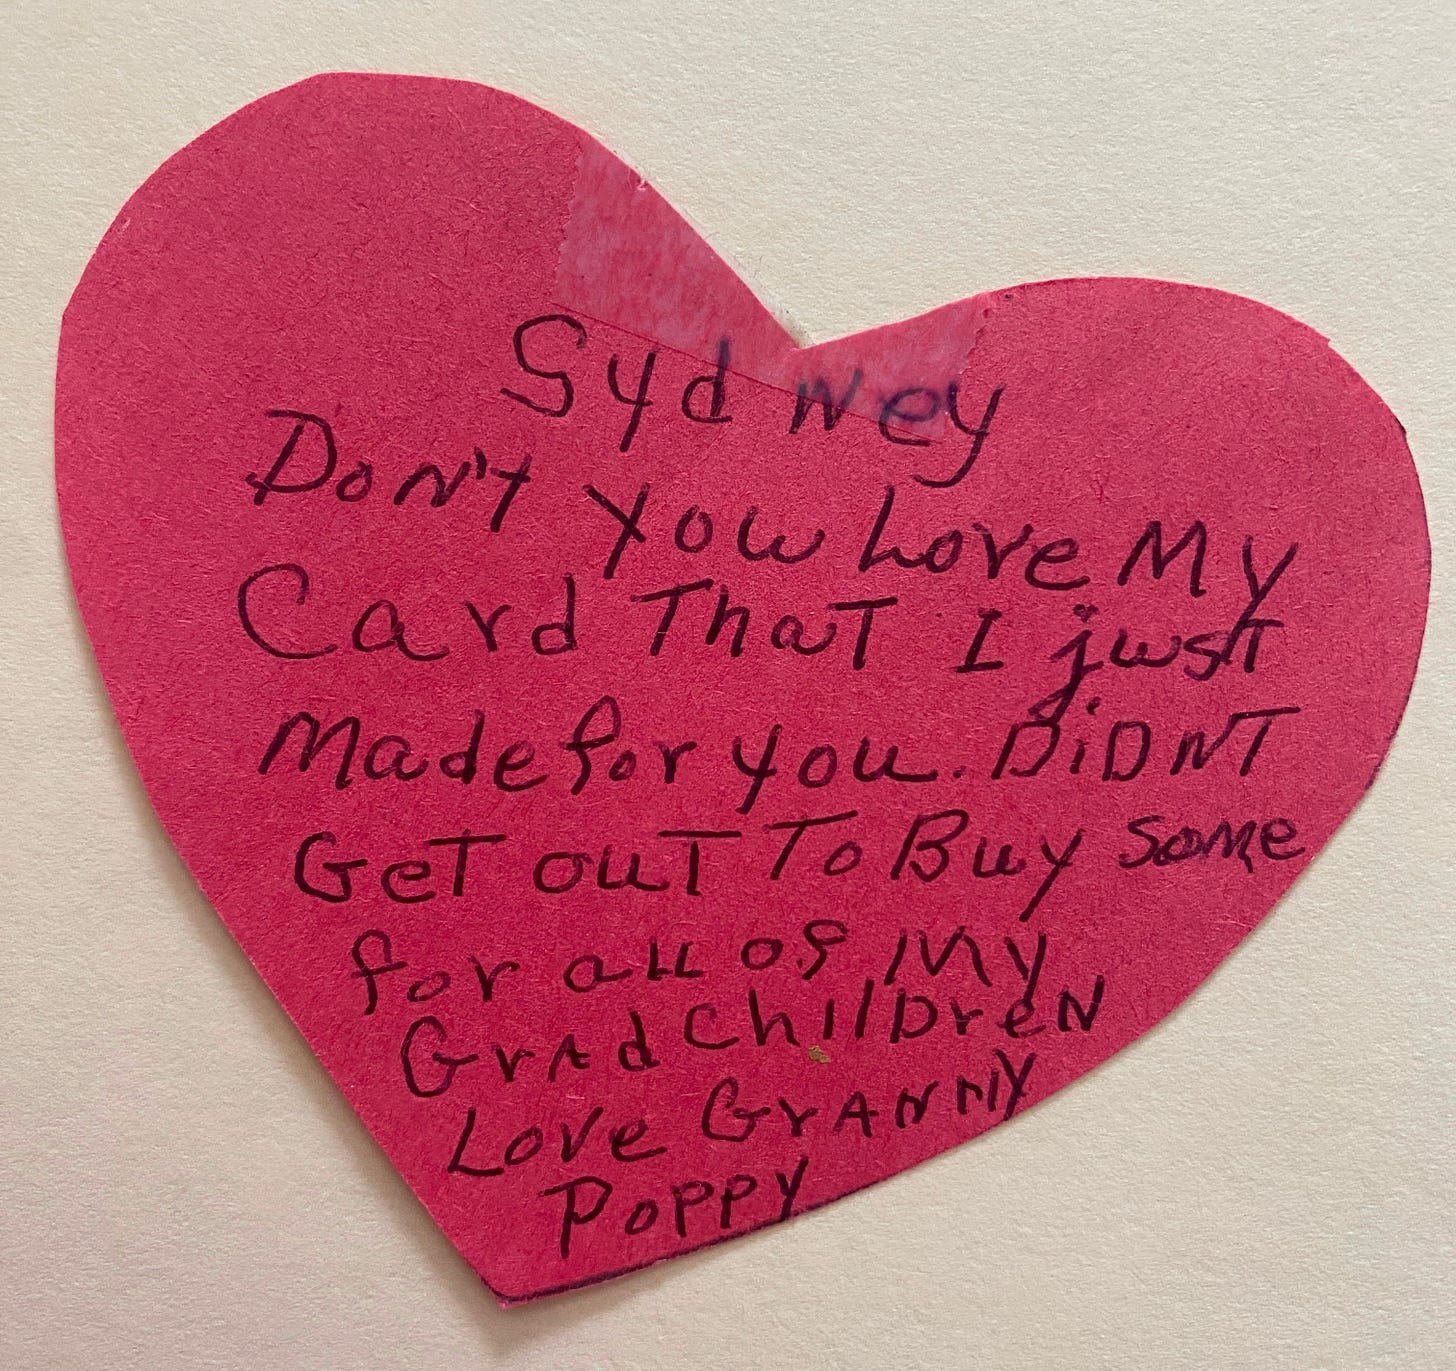 Sydney
Don't you Love My
Card That I just
Made for you. DiDNT
GeT ouT To Buy some
for all of My
GrAdchilDreN
Love GrANNY
Poppy